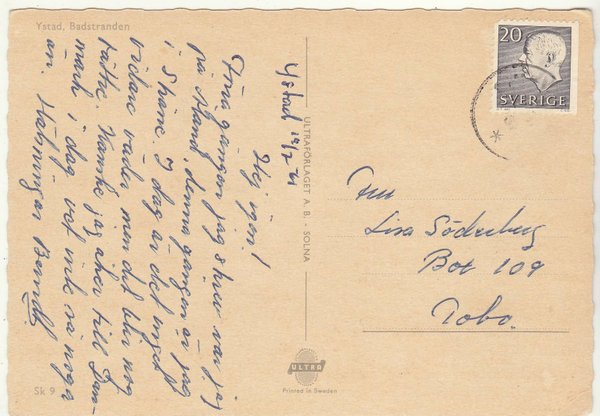 Ystad, Badstranden
Ystad 12/7 61
Hej igen!
Förra gången jag skrev var jag
på Åland, denna gången är jag
i Skåne. I dag är det
vidare väder, men det blir nog
bättre. Kanske jag åker till Dan-
mark i dag vet inte så noga
än. Hälsningar
ULTRAFÖRLAGET A. B. - SOLNA
20
SVERIGE
Lisa Söderberg
Box 109
Tobo.
ULTRA
Printed in Sweden
Sk 9